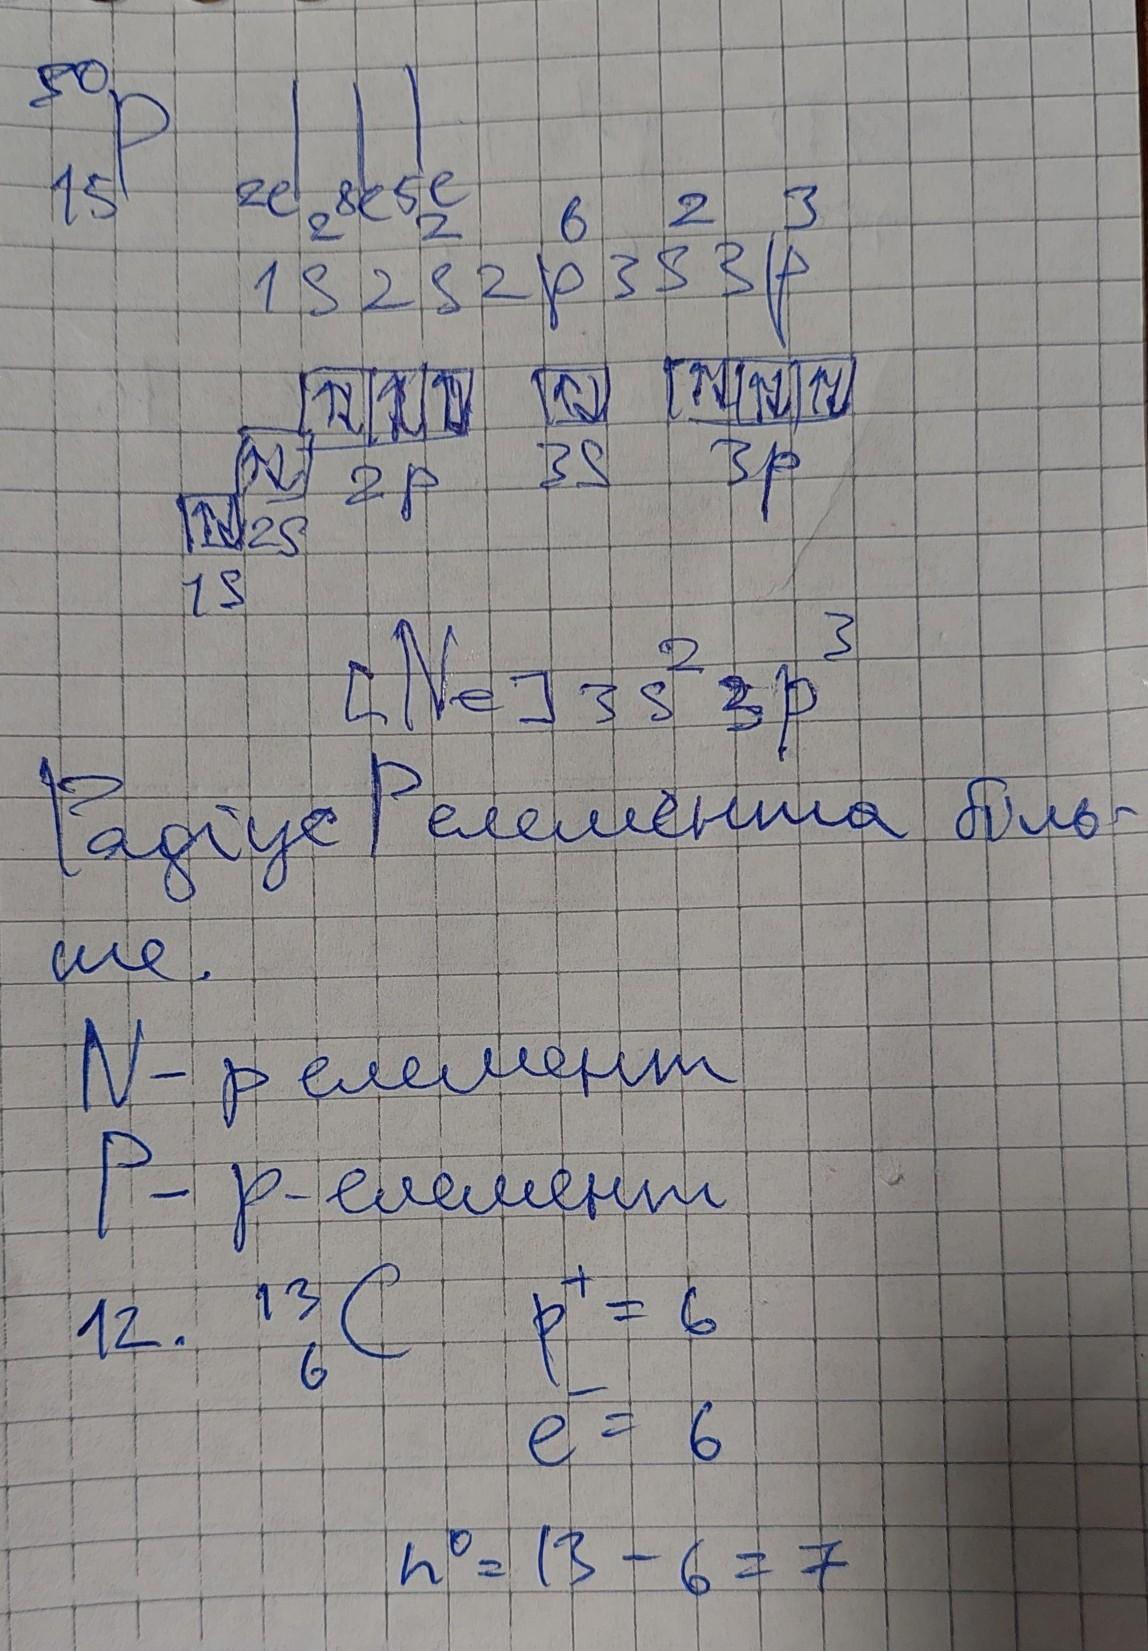 30
P
15 2e 8e 5e
1s² 2s² 2p⁶ 3s² 3p³
2p 3s 3p
2s
1s
[Ne] 3s² 3p³
Радіус P елемента біль-
ше.
N - p елемент
P - p-елемент
12. ¹³₆C p⁺ = 6
e⁻ = 6
n⁰ = 13 - 6 = 7